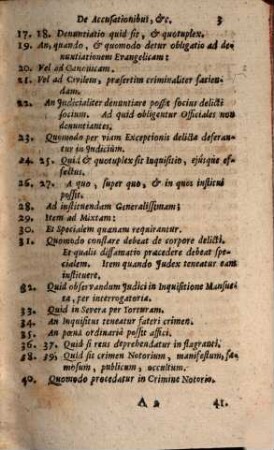 De Accusationibus, &c. 3
17. 18. Denuntiatio quid sit, & quotuplex.
19. An, quando, & quomodo detur obligatio ad de
nuntiationem Evangelicam:
20. Vel ad Canonicam.
21. Vel ad Civilem, præsertim criminaliter facien-
dam.
22. An Judicialiter denuntiare possit socius delicti
socium. Ad quid obligentur Officiales non
denuntiantes.
23. Quomodo per viam Exceptionis delicta deferan-
tur in Judicium.
24. 25. Quid & quotuplex sit Inquisitio, ejusque ef-
fectus.
26. 27. A quo, super quo, & in quos institui
possit.
28. Ad instituendam Generalissimam;
29. Item ad Mixtam:
30. Et Specialem quænam requirantur.
31. Quomodo constare debeat de corpore delicti.
Et qualis diffamatio præcedere debeat spe-
cialem. Item quando Judex teneatur eam
instituere.
32. Quid observandum Judici in Inquisitione Mansue-
ta, per interrogatoria.
33. Quid in Severa per Torturam.
34. An inquisitus teneatur fateri crimen.
35. An pœnâ ordinariâ possit affici.
36. 37. Quid si reus deprehendatur in flagranti.
38. 39. Quid sit crimen Notorium, manifestum, fa-
mosum, publicum, occultum.
40. Quomodo procedatur in Crimine Notorio.
A 2 41.